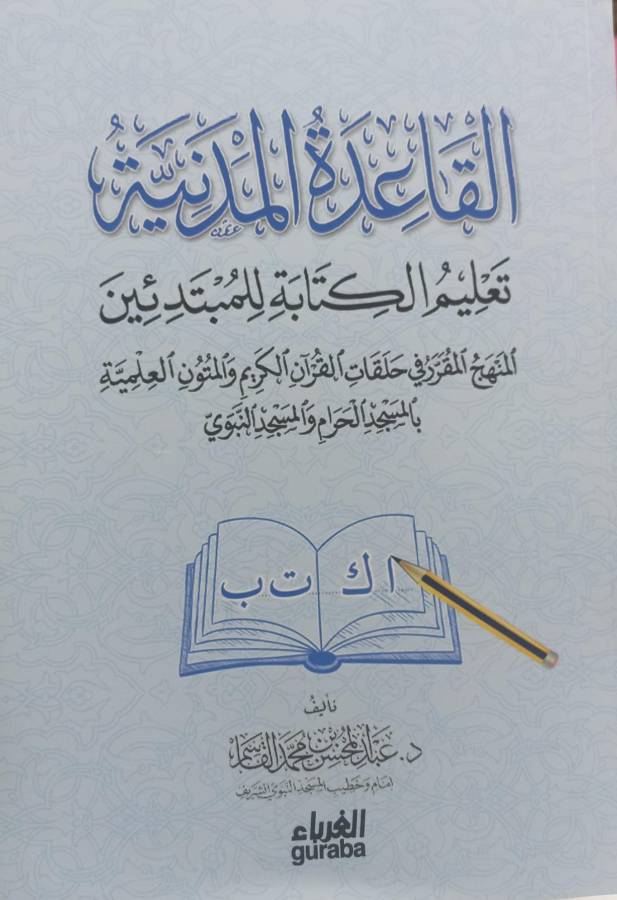 القَاعِدَةُ المَدَنِيَّةُ
تَعْلِيمُ الكِتَابَةِ لِلْمُبْتَدِئِينَ
المَنْهَجُ المُقَرَّرُ فِي حَلَقَاتِ القُرْآنِ الكَرِيمِ وَالمُتُونِ العِلْمِيَّةِ
بِالمَسْجِدِ الحَرَامِ وَالمَسْجِدِ النَّبَوِيِّ
ا ك ت ب
تأليفُ
د. عَبْدُ المُحْسِن بْنُ مُحَمَّد القَاسِم
إمام وخطيب المسجد النبوي الشريف
الغرباء
guraba